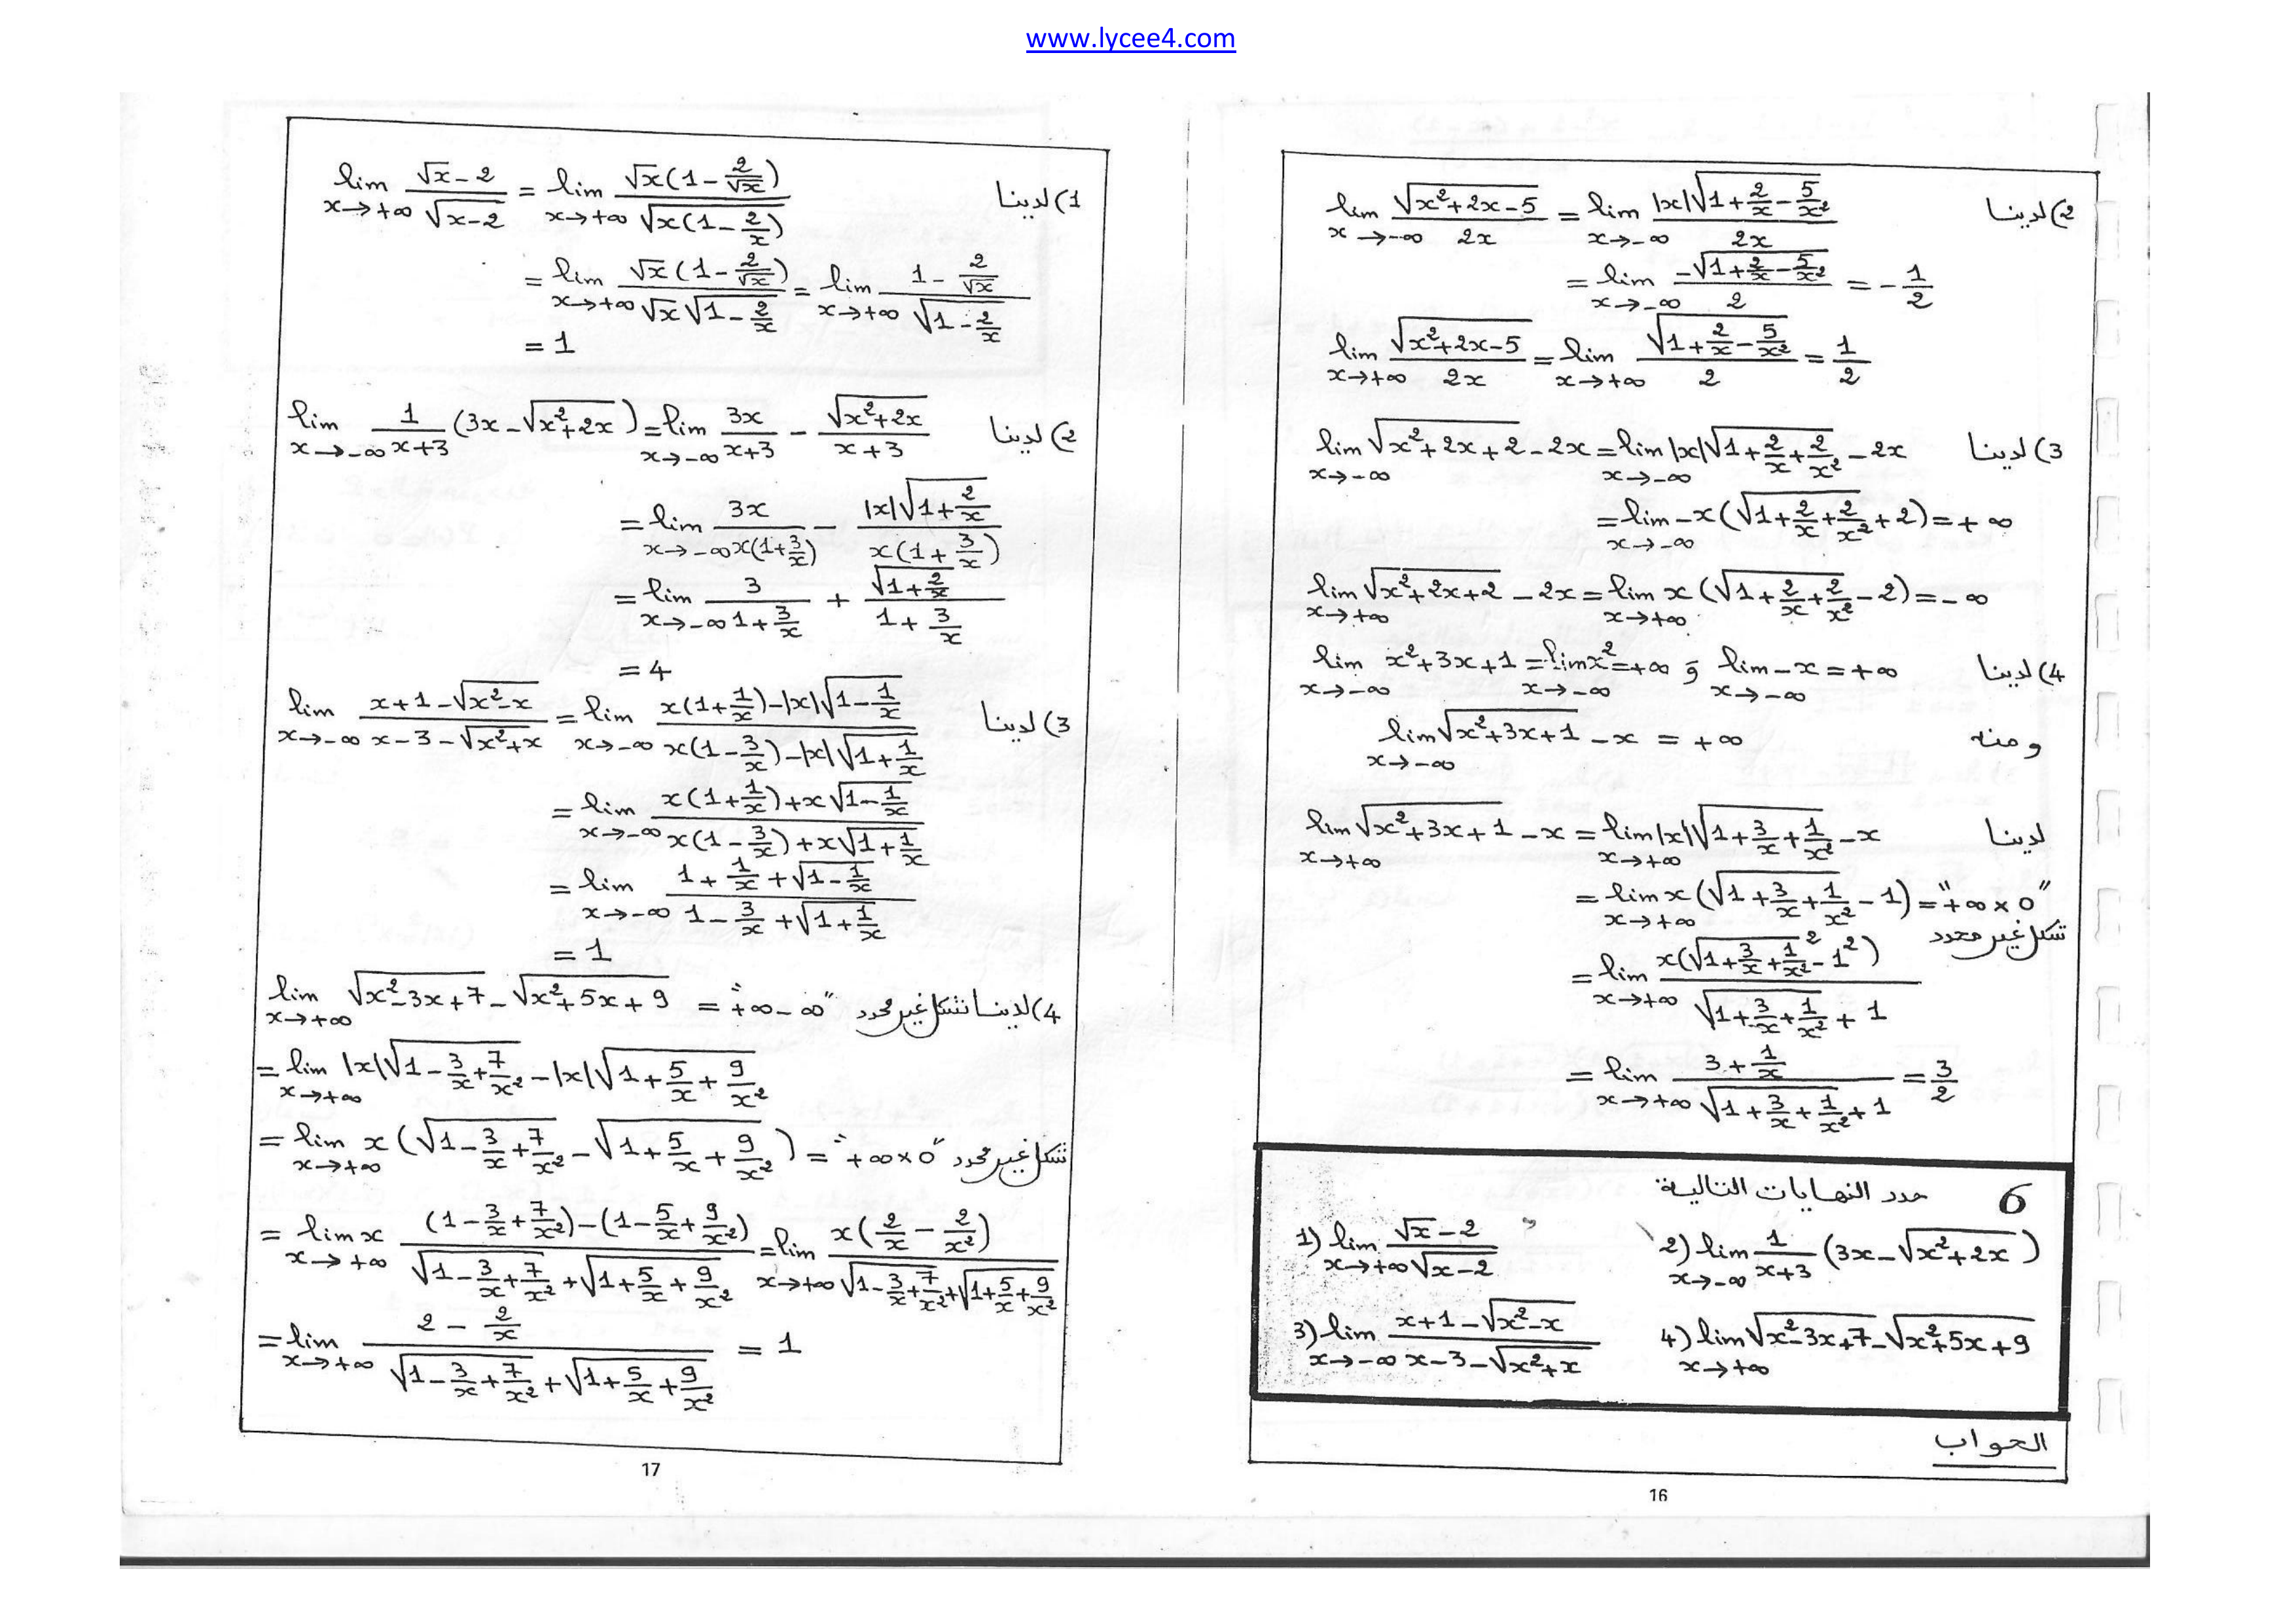 www.lycee4.com
2) لدينا lim_{x→-∞} √(x²+2x-5) / 2x = lim_{x→-∞} |x|√(1+2/x-5/x²) / 2x
= lim_{x→-∞} -√(1+2/x-5/x²) / 2 = -1/2
lim_{x→+∞} √(x²+2x-5) / 2x = lim_{x→+∞} √(1+2/x-5/x²) / 2 = 1/2
3) لدينا lim_{x→-∞} √(x²+2x+2) - 2x = lim_{x→-∞} |x|√(1+2/x+2/x²) - 2x
= lim_{x→-∞} -x(√(1+2/x+2/x²) + 2) = +∞
lim_{x→+∞} √(x²+2x+2) - 2x = lim_{x→+∞} x(√(1+2/x+2/x²) - 2) = -∞
4) لدينا lim_{x→-∞} x²+3x+1 = lim_{x→-∞} x² = +∞ و lim_{x→-∞} -x = +∞
ومنه lim_{x→-∞} √(x²+3x+1) - x = +∞
لدينا lim_{x→+∞} √(x²+3x+1) - x = lim_{x→+∞} |x|√(1+3/x+1/x²) - x
= lim_{x→+∞} x(√(1+3/x+1/x²) - 1) = "+∞×0"
شكل غير محدد
= lim_{x→+∞} x(√(1+3/x+1/x²)² - 1²) / (√(1+3/x+1/x²) + 1)
= lim_{x→+∞} (3+1/x) / (√(1+3/x+1/x²) + 1) = 3/2
6 حدد النهايات التالية:
1) lim_{x→+∞} (√x - 2) / √(x-2) 2) lim_{x→-∞} 1/(x+3) (3x - √(x²+2x))
3) lim_{x→-∞} (x+1-√(x²-x)) / (x-3-√(x²+x)) 4) lim_{x→+∞} √(x²-3x+7) - √(x²+5x+9)
الجواب
16
1) لدينا lim_{x→+∞} (√x - 2) / √(x-2) = lim_{x→+∞} √x(1-2/√x) / √(x(1-2/x))
= lim_{x→+∞} √x(1-2/√x) / (√x √(1-2/x)) = lim_{x→+∞} (1-2/√x) / √(1-2/x)
= 1
2) لدينا lim_{x→-∞} 1/(x+3) (3x-√(x²+2x)) = lim_{x→-∞} 3x/(x+3) - √(x²+2x)/(x+3)
= lim_{x→-∞} 3x / x(1+3/x) - |x|√(1+2/x) / x(1+3/x)
= lim_{x→-∞} 3/(1+3/x) + √(1+2/x) / (1+3/x)
= 4
3) لدينا lim_{x→-∞} (x+1-√(x²-x)) / (x-3-√(x²+x)) = lim_{x→-∞} (x(1+1/x)-|x|√(1-1/x)) / (x(1-3/x)-|x|√(1+1/x))
= lim_{x→-∞} (x(1+1/x)+x√(1-1/x)) / (x(1-3/x)+x√(1+1/x))
= lim_{x→-∞} (1+1/x+√(1-1/x)) / (1-3/x+√(1+1/x))
= 1
4) لدينا شكل غير محدد lim_{x→+∞} √(x²-3x+7) - √(x²+5x+9) = "+∞-∞"
= lim_{x→+∞} |x|√(1-3/x+7/x²) - |x|√(1+5/x+9/x²)
= lim_{x→+∞} x(√(1-3/x+7/x²) - √(1+5/x+9/x²)) = "+∞×0" شكل غير محدد
= lim_{x→+∞} x ((1-3/x+7/x²)-(1-5/x+9/x²)) / (√(1-3/x+7/x²)+√(1+5/x+9/x²)) = lim_{x→+∞} x(2/x-2/x²) / (√(1-3/x+7/x²)+√(1+5/x+9/x²))
= lim_{x→+∞} (2-2/x) / (√(1-3/x+7/x²)+√(1+5/x+9/x²)) = 1
17